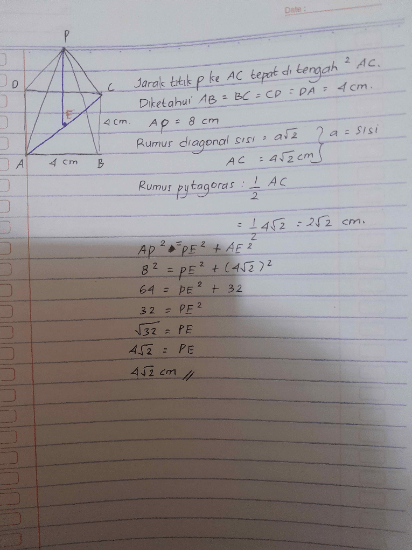 Date:
P
D
C
E
4 cm.
A 4 cm B
Jarak titik p ke AC tepat di tengah² AC.
Diketahui AB = BC = CD = DA = 4 cm.
AP = 8 cm
Rumus diagonal sisi = a√2 } a = sisi
AC = 4√2 cm
Rumus pytagoras : 1/2 AC
= 1/2 4√2 = 2√2 cm.
AP² = PE² + AE²
8² = PE² + (4√2)²
64 = PE² + 32
32 = PE²
√32 = PE
4√2 = PE
4√2 cm //